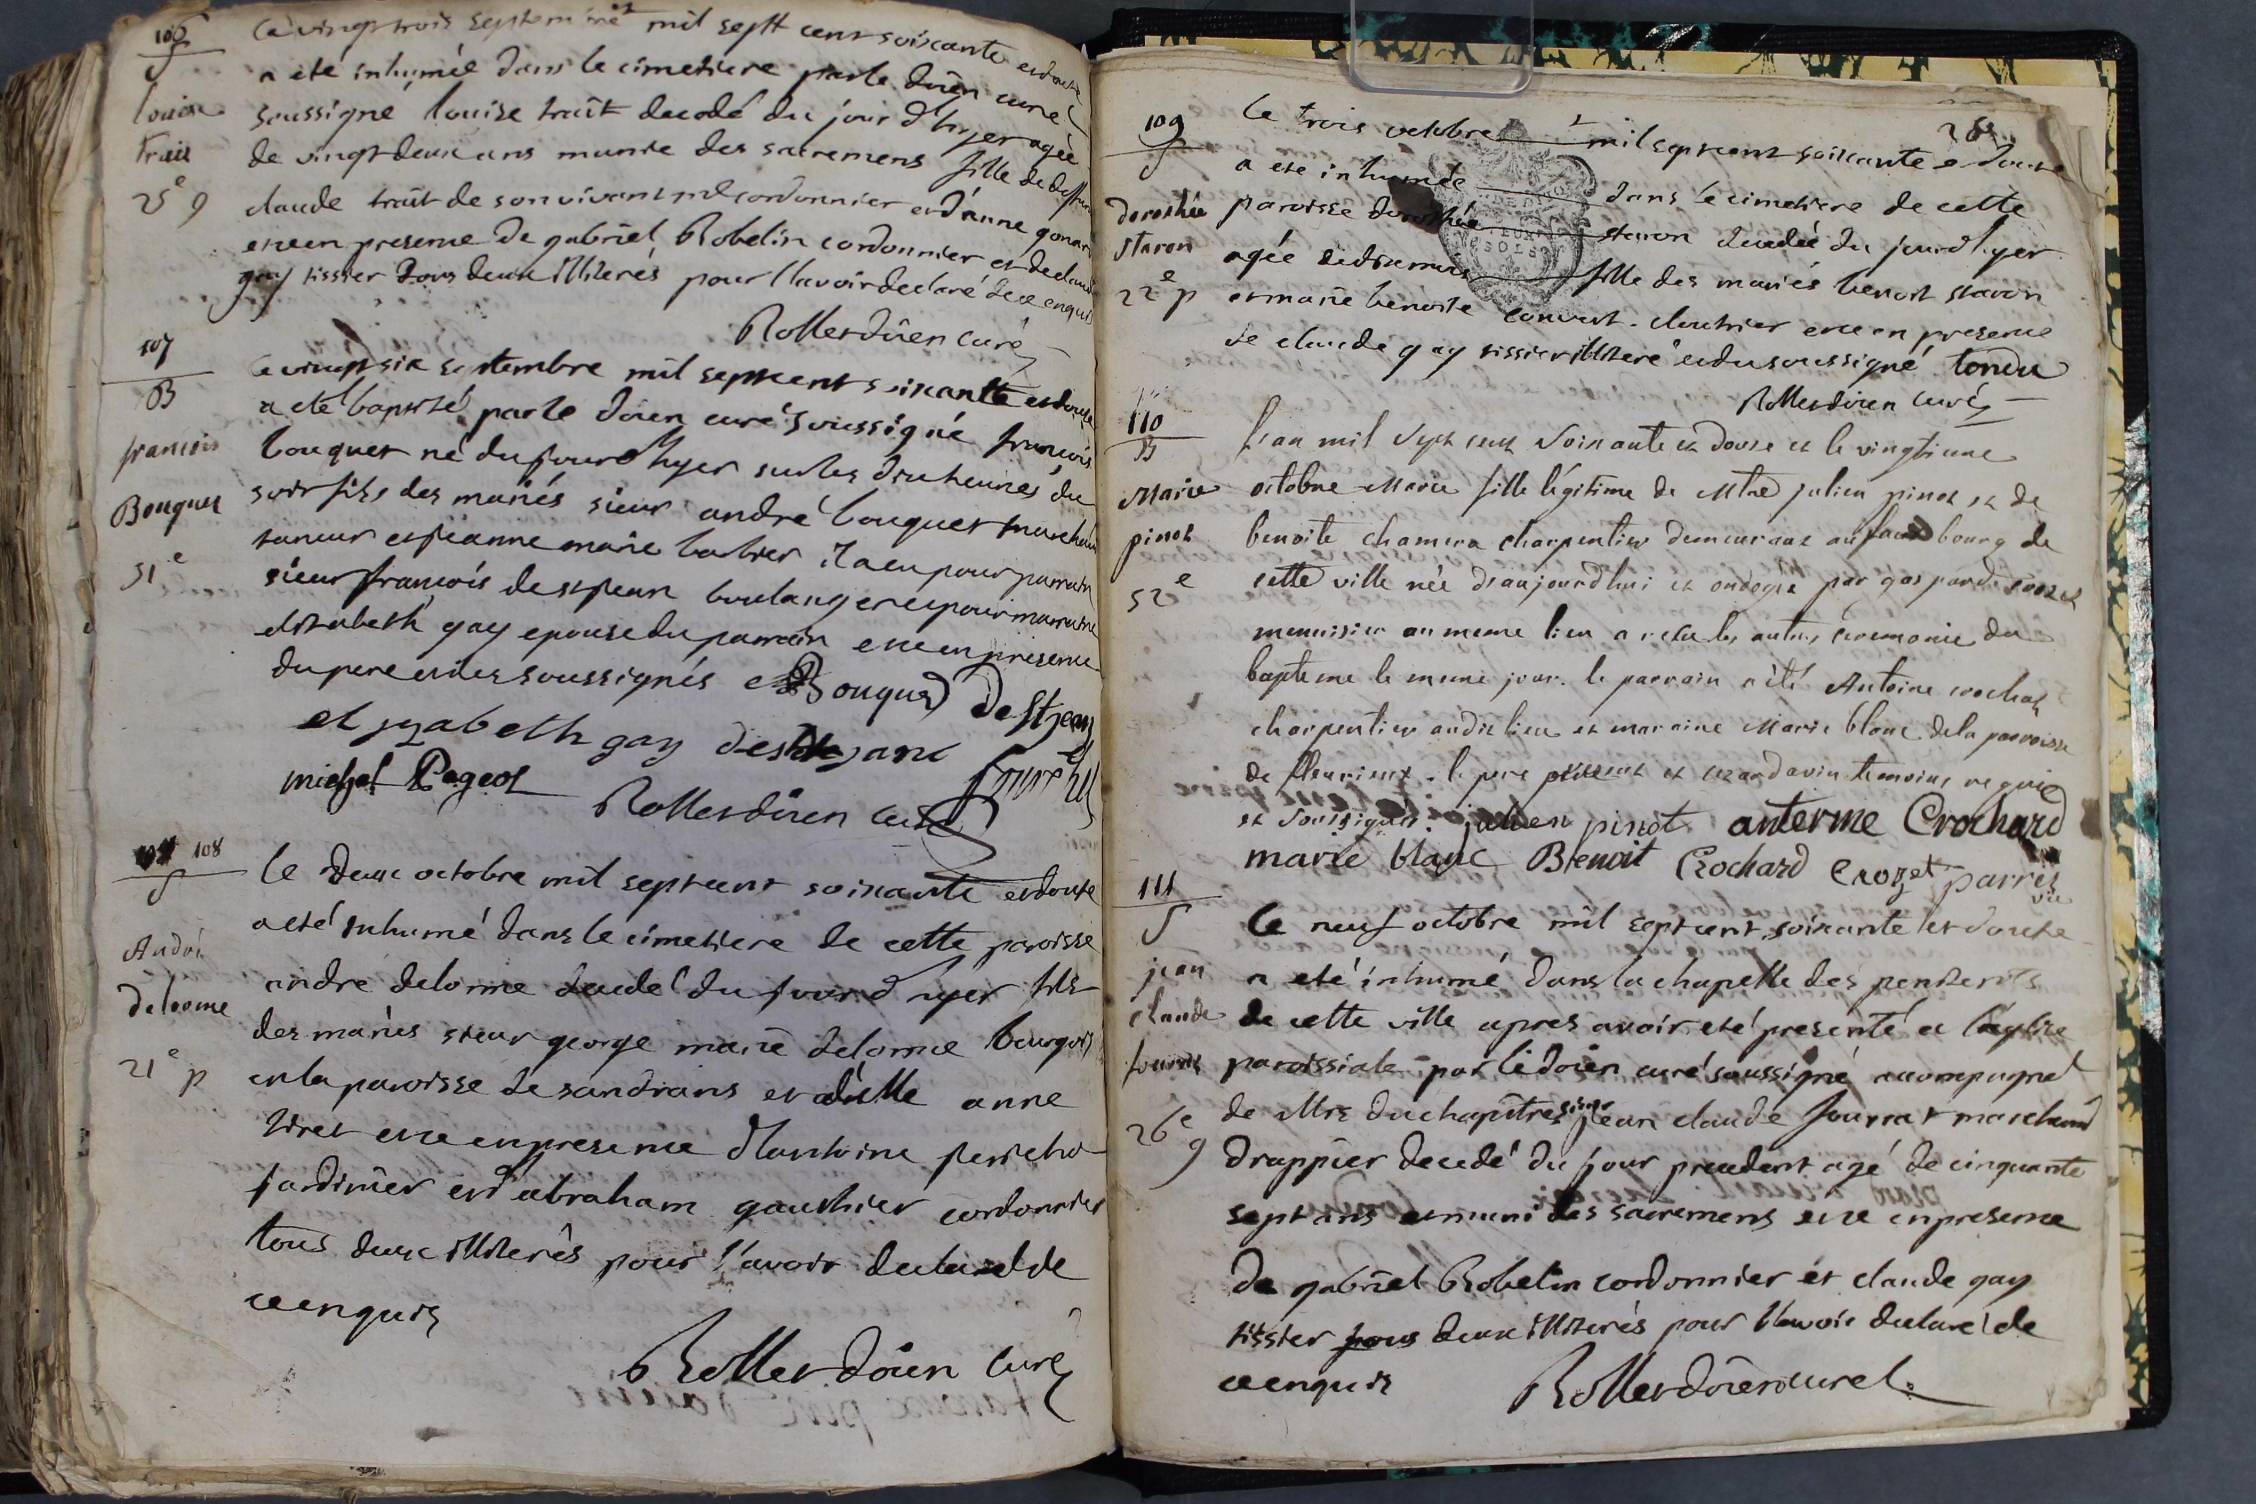 106
S
louise
trait
25e g
Ce vingt trois septembre mil sept cent soixante et douze
a eté inhumée dans le cimetiere par le doïen curé
soussigné louise trait decedé du jour d'hyer agée
de vingt deux ans munie des sacremens fille de deffunt
claude trait de son vivant mtre cordonnier et d'anne gonard
et ce en presence de gabriel Robelin cordonnier et de claude
gay tissier tous deux illiterés pour l'avoir declaré de ce enquis
Rollet doïen curé
107
B
francois
Bouquet
51e
Ce vingt six septembre mil sept cent soixante et douze
a eté baptisé par le doïen curé soussigné francois
bouquet né du jour d'hyer sur les dix heures du
soir fils des mariés sieur andré bouquet marchand
taneur et jeanne marie barbier il a eu pour parrain
sieur francois de st jean boulanger et pour marraine
elisabeth gay epouse du parrain et ce en presence
du pere et des soussignés Bouquet De St jean
elyzabeth gay de st jean
michel Pageot
Rollet doïen curé
108
S
André
delorme
21e p
le deux octobre mil sept cent soixante et douze
a eté inhumé dans le cimetiere de cette paroisse
andré delorme decedé du jour d'hyer fils
des mariés sieur george marie delorme bourgois
en la paroisse de sandrans et d'elle anne
tiret et ce en presence d'antoine perichon
jardinier et d'abraham gauthier cordonnier
tous deux illiterés pour l'avoir declaré de
ce enquis
Rollet doïen curé
109
S
dorothée
staron
22e p
le trois octobre mil sept cent soixante et douze
a eté inhumée dans le cimetiere de cette
paroisse dorothée staron decedée du jour d'hyer
agée de dix mois fille des mariés benoit staron
et marie benoite convert cloutrier et ce en presence
de claude gay tissier illiteré et du soussigné tondu
Rollet doïen curé
110
B
Marie
pinot
52e
L'an mil sept cent soixante et douze et le vingtieme
octobre Marie fille légitime de Mtre julien pinot et de
benoite chamera charpentier demeurant au faubourg de
cette ville née d'aujourd'hui et ondoyée par gaspard crozet
menuisier au meme lieu a reçu les autres ceremonie du
bapteme le meme jour. le parrain a été Antoine crochat
charpentier audit lieu et maraine Marie blanc de la paroisse
de fleurieux. le pere present et temoins requis
et soussignés. julien pinot anterme Crochard
marie blanc Benoit Crochard Crozet parret
vic
111
S
jean
claude
fourrat
26e g
Ce neuf octobre mil sept cent soixante et douze
a eté inhumé dans la chapelle des penitents
de cette ville apres avoir eté presenté a l'eglise
paroissiale par le doïen curé soussigné accompagné
de Mrs du chapitre sieur jean claude fourrat marchand
drappier decedé du jour precedent agé de cinquante
sept ans et muni des sacremens et ce en presence
de gabriel Robelin cordonnier et claude gay
tissier tous deux illiterés pour l'avoir declaré de
ce enquis
Rollet doïen curé